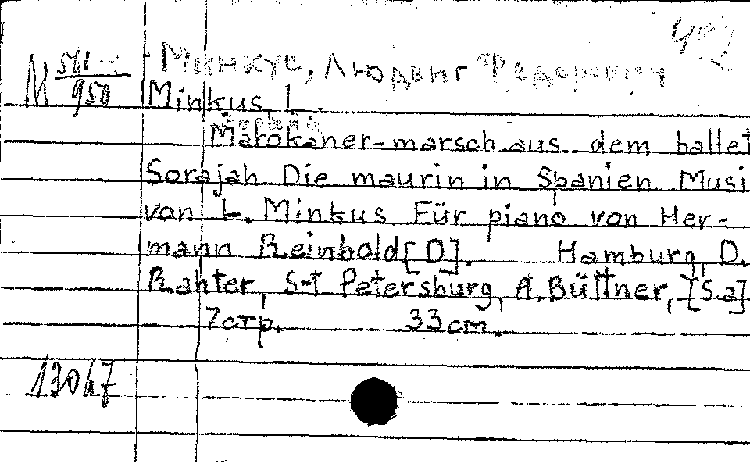 Минкус, Людвиг Федорович
M 561
950
Minkus, L.
Marokaner-marsch aus dem ballet
Sorajah Die maurin in Spanien Musi
von L. Minkus Für piano von Her-
mann Reinbold [D]. Hamburg, D.
Rahter, S-t Petersburg, A. Büttner, [S.a]
7 стр. 33 cm.
13047